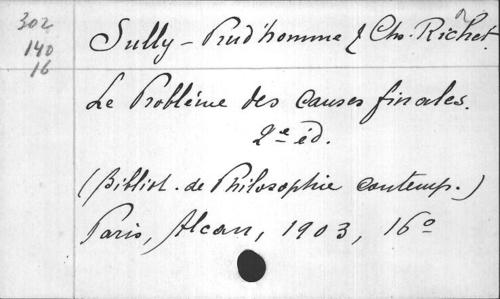 302
140
16
Sully-Prud'homme & Chs. Richet.
Le Problème des causes finales.
2e éd.
(Bibliot. de Philosophie contemp.)
Paris, Alcan, 1903, 16o